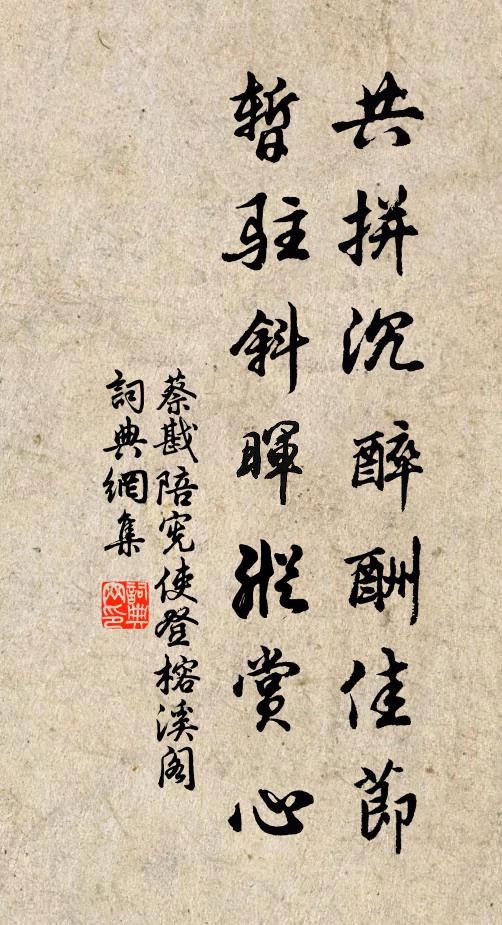 共拼沉醉酬佳節
暫駐斜暉縱賞心
蔡戡陪宪使登榕溪阁
詞典網集
詞典网印